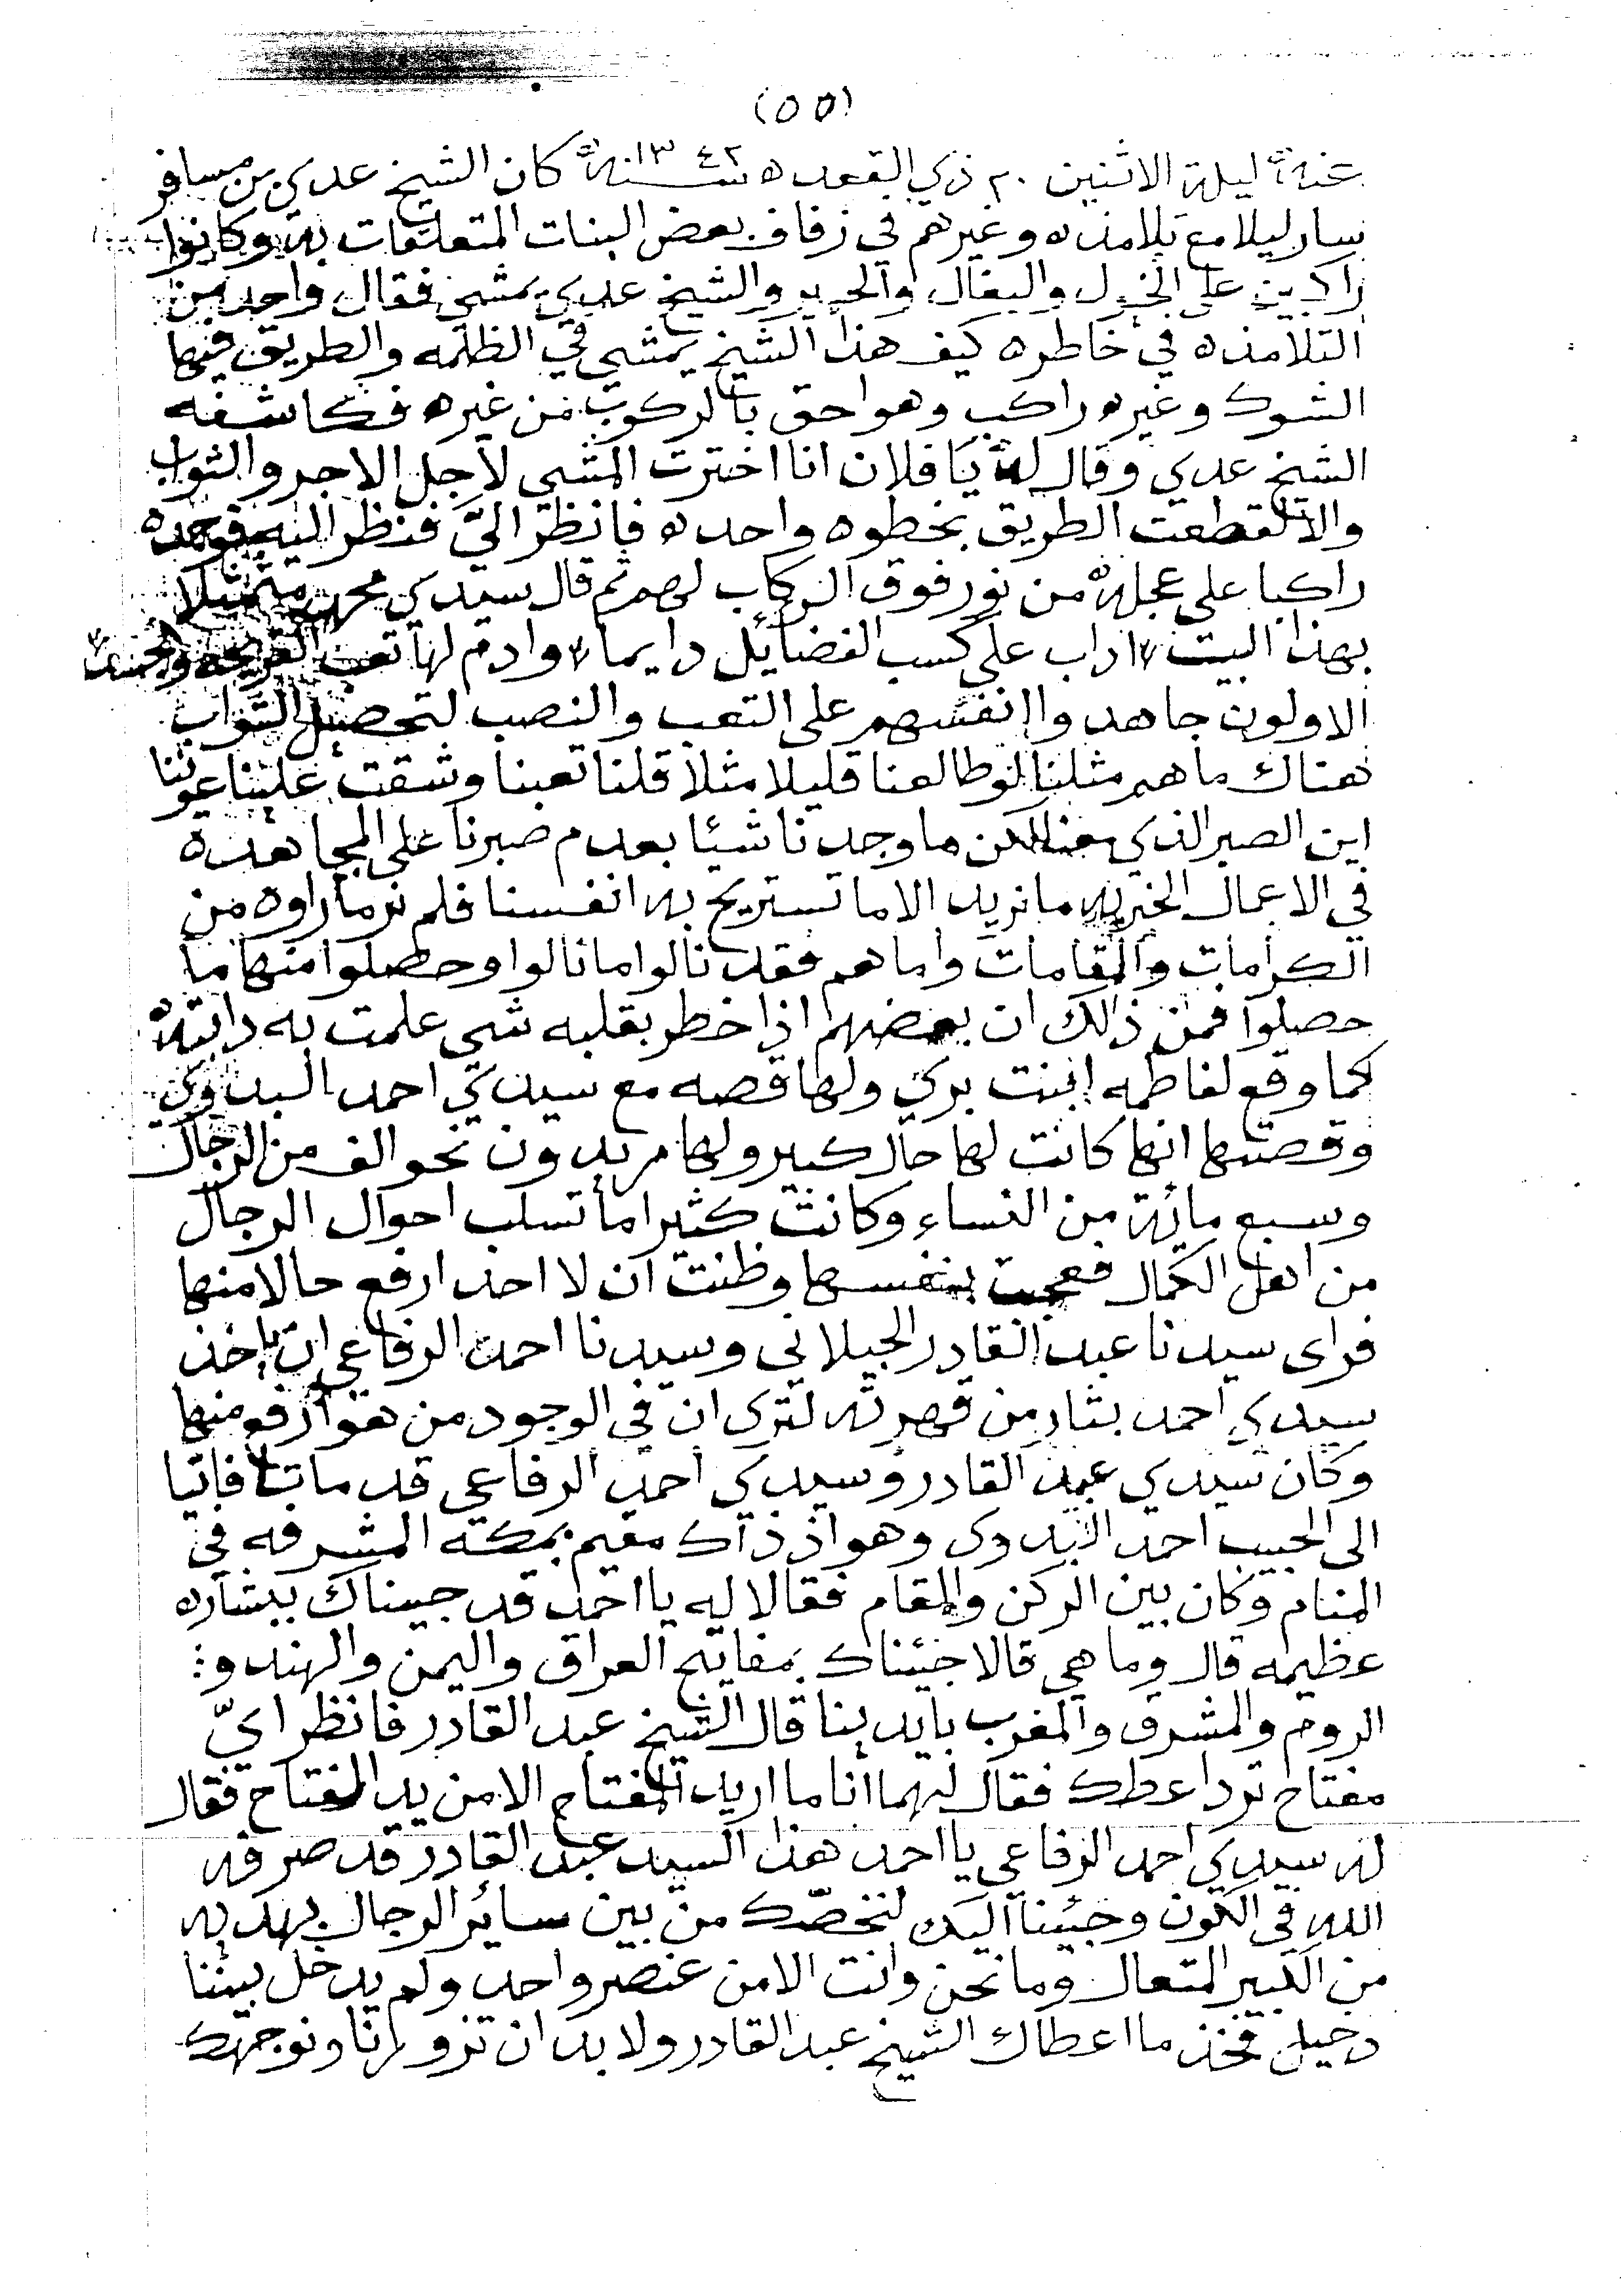 (٥٥)
عنه ليلة الاثنين ٢٠ ذي القعده سنة ١٣٤٢ كان الشيخ عدي بن مسافر
سار ليلا مع تلامذه وغيرهم في زفاف بعض البنات المتعلقات به وكانوا
راكبين على الخيول والبغال والحمير والشيخ عدي يمشي فقال واحد من
التلامذه في خاطره كيف هذا الشيخ يمشي في الظلمه والطريق فيها
الشوك وغيره راكب وهو احق بالركوب من غيره فكاشفه
الشيخ عدي وقال له يا فلان انا اخترت المشي لاجل الاجر والثواب
والا لقطعت الطريق بخطوه واحده فانظر اليّ فنظر اليه فوجده
راكبا على عجلة من نور فوق الركاب لهم ثم قال سيدي متمثلا
بهذا البيت اداب على كسب الفضايل دايما وادم لها تعب القريحه والجسد
الاولون جاهدوا انفسهم على التعب والنصب لتحصيل الثواب
هناك ما هم مثلنا لوطالعنا قليلا مثلا قلنا تعبنا وشقت علينا عيوننا
اين الصبر الذي معنا لكن ما وجدنا شيئا بعدم صبرنا على المجاهده
في الاعمال الخيريه ما نريد الا ما تستريح به انفسنا فلم نر ما راوه من
الكرامات والمقامات واما هم فقد نالوا ما نالوا وحصلوا منها ما
حصلوا فمن ذالك ان بعضهم اذا خطر بقلبه شي علمت به دابته
كما وقع لفاطمه ابنت بري ولها قصه مع سيدي احمد البدوي
وقصتها انها كانت لها حال كبير ولها مريدون نحو الف من الرجال
وسبع مائة من النساء وكانت كثيرا ما تسلب احوال الرجال
من اهل الكمال فعجبت بنفسها وظنت ان لا احد ارفع حالا منها
فراى سيدنا عبد القادر الجيلاني وسيدنا احمد الرفاعي ان ياخذ
سيدي احمد بثار من قهرته لترى ان في الوجود من هو ارفع منها
وكان سيدي عبد القادر وسيدي احمد الرفاعي قد ماتا فاتيا
الى الحبيب احمد البدوي وهو اذ ذاك مقيم بمكه المشرفه في
المنام وكان بين الركن والمقام فقالا له يا احمد قد جيناك ببشاره
عظيمه قال وما هي قالا جئناك بمفاتيح العراق واليمن والهند و:
الروم والمشرق والمغرب بايدينا قال الشيخ عبد القادر فانظر ايّ
مفتاح ترد اعطك فقال لهما انا ما اريد المفتاح الا من يد المفتاح فقال
له سيدي احمد الرفاعي يا احمد هذا السيد عبد القادر قد صرفه
الله في الكون وجئنا اليك لنخصّك من بين سائر الرجال بهديه
من الكبير المتعال وما نحن وانت الا من عنصر واحد ولم يدخل بيننا
دخيل فخذ ما اعطاك الشيخ عبد القادر ولا بد ان تزورنا ونوجهك